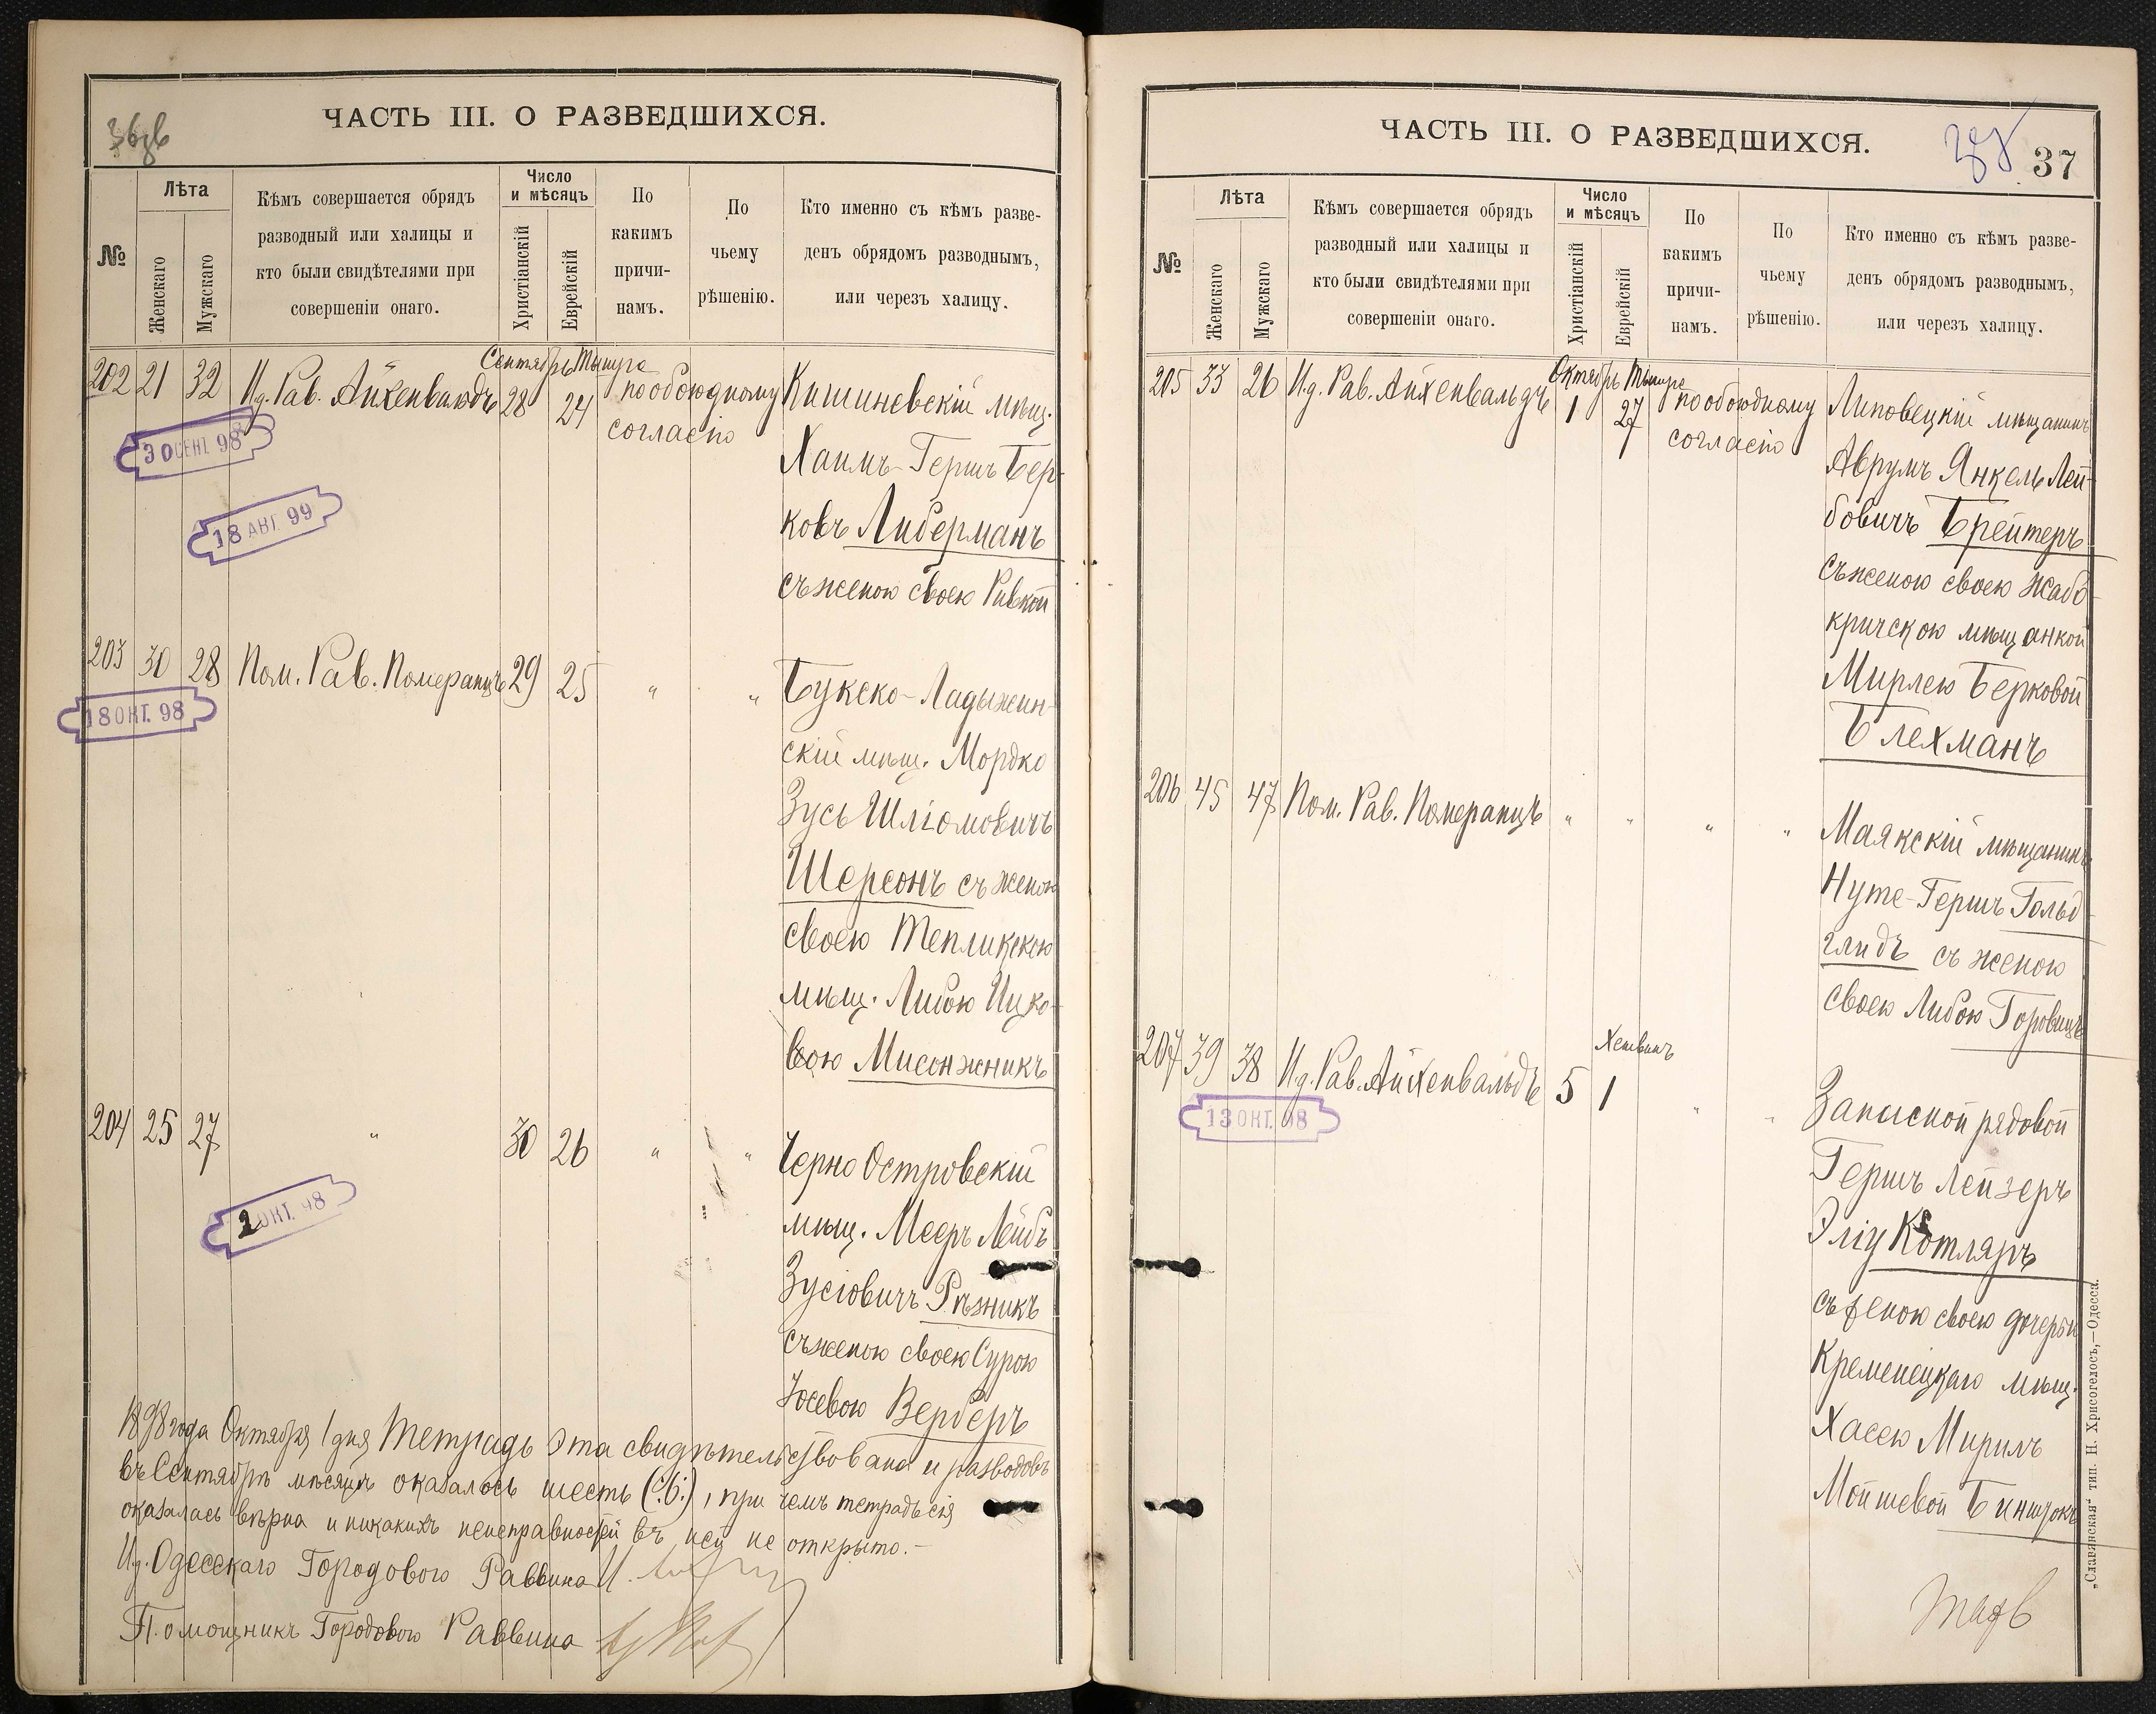 ЧАСТЬ III. О РАЗВЕДШИХСЯ.
№
Лѣта
Женскаго
Мужскаго
Кѣмъ совершается обрядъ
разводный или халицы и
кто были свидѣтелями при
совершеніи онаго.
Число
и мѣсяцъ
Христіанскій
Еврейскій
По
какимъ
причи-
намъ.
По
чьему
рѣшенію.
Кто именно съ кѣмъ разве-
денъ обрядомъ разводнымъ,
или черезъ халицу.
Сентябрь Тышре
202 21 32 И. д. Рав. Айхенвальдъ 28 24 по обоюдному
согласію
Кишиневскій мѣщ.
Хаимъ-Гершъ Бер-
ковъ Либерманъ
съ женою своею Ривкой
30 СЕНТ. 98
18 АВГ. 99
203 30 28 Пом. Рав. Померанцъ 29 25 " "
Букско-Ладыжин-
скій мѣщ. Мордко
Зусь Шліомовичъ
Шерсонъ съ женою
своею Тепликскою
мѣщ. Либою Ицко-
вою Мисонжникъ
18 ОКТ. 98
204 25 27 " 30 26 " "
Черно Островскій
мѣщ. Мееръ Лейбъ
Зусіовичъ Рѣзникъ
съ женою своею Сурою
Іосевою Верберъ
2 ОКТ. 98
1898 года Октября 1 дня Тетрадь эта свидѣтельствована и разводовъ
въ Сентябрѣ мѣсяцѣ оказалось шесть (:6:), при чемъ тетрадь сія
оказалась вѣрна и никакихъ неисправностей въ ней не открыто.-
И. д. Одесскаго Городового Раввина
Помощникъ Городового Раввина
ЧАСТЬ III. О РАЗВЕДШИХСЯ.
37
№
Лѣта
Женскаго
Мужскаго
Кѣмъ совершается обрядъ
разводный или халицы и
кто были свидѣтелями при
совершеніи онаго.
Число
и мѣсяцъ
Христіанскій
Еврейскій
По
какимъ
причи-
намъ.
По
чьему
рѣшенію.
Кто именно съ кѣмъ разве-
денъ обрядомъ разводнымъ,
или черезъ халицу.
Октябрь Тышре
205 33 26 И. д. Рав. Айхенвальдъ 1 27 по обоюдному
согласію
Липовецкій мѣщанинъ
Аврумъ Янкель Лей-
бовичъ Брейтеръ
съ женою своею Жабо-
кричскою мѣщанкой
Мирлею Берковой
Блехманъ
206 45 47 Пом. Рав. Померанцъ " " " "
Маякскій мѣщанинъ
Нуте-Гершъ Гольд-
глидъ съ женою
своею Либою Горовицъ
Хешвинъ
207 39 38 И. д. Рав. Айхенвальдъ 5 1 " "
Запасной рядовой
Гершъ Лейзеръ
Эліу Котляръ
съ женою своею дочерью
Кременецкаго мѣщ.
Хасею Мирилъ
Мойшевой Бинштокъ
13 ОКТ. 98
„Славянская" тип. Н. Хрисогелосъ,—Одесса.